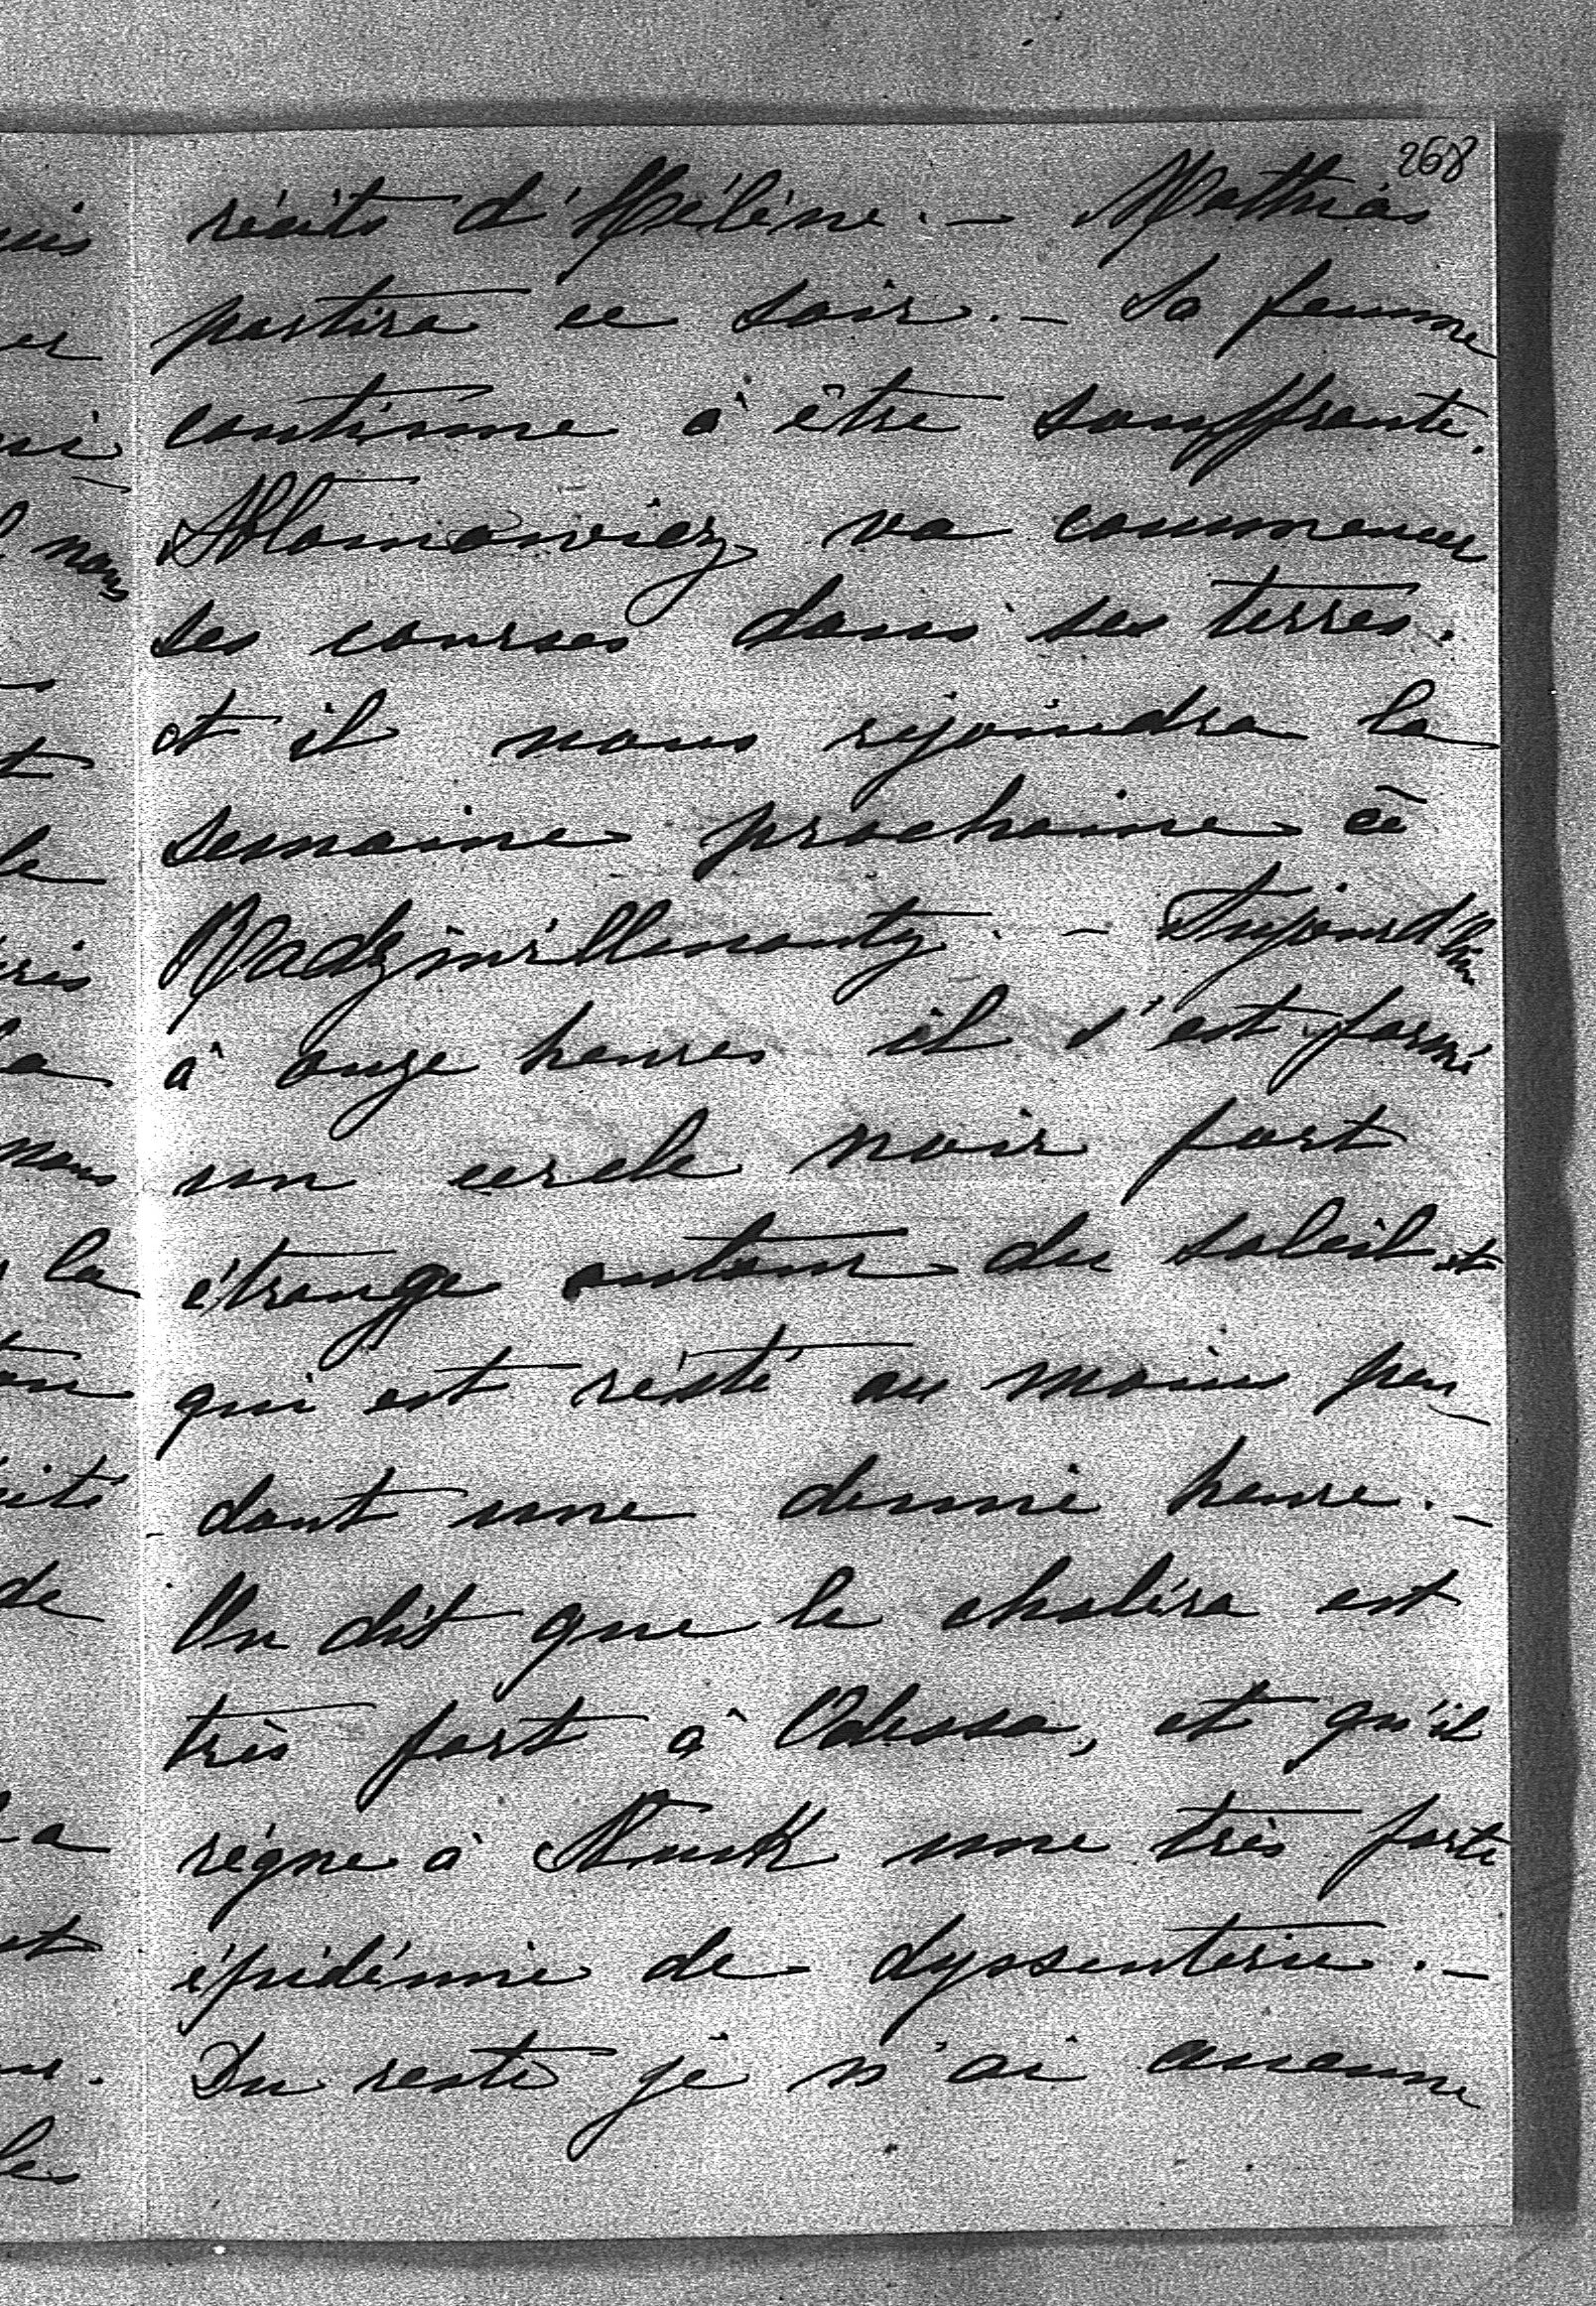 268
récits d'Hélène. — Mathias
partira ce soir. — Sa femme
continue à être souffrante.
va commencer
ses courses dans ses terres.
et il nous rejoindra la
semaine prochaine à
Radziwillmonty. — Aujourd'hui
à onze heures il s'est formé
un cercle noir fort
étrange autour du soleil et
qui est resté au moins pen
dant une demie heure. —
On dit que le choléra est
très fort à Odessa, et qu'il
règne à une très forte
épidémie de dyssenterie. —
Du reste je n'ai aucune